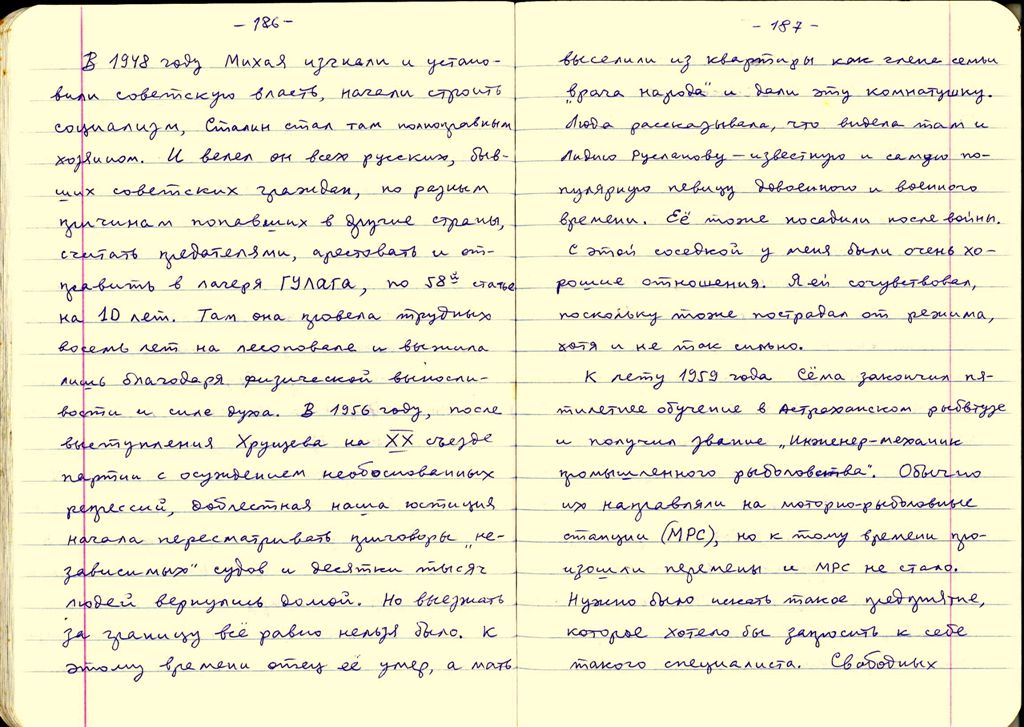 - 186 -
В 1948 году Михая изгнали и устано-
вили советскую власть, начали строить
социализм, Сталин стал там полноправным
хозяином. И велел он всех русских, быв-
ших советских граждан, по разным
причинам попавших в другие страны,
считать предателями, арестовать и от-
править в лагеря ГУЛАГа, по 58й статье
на 10 лет. Там она провела трудных
восемь лет на лесоповале и выжила
лишь благодаря физической выносли-
вости и силе духа. В 1956 году, после
выступления Хрущева на XX съезде
партии с осуждением необоснованных
репрессий, доблестная наша юстиция
начала пересматривать приговоры „не-
зависимых" судов и десятки тысяч
людей вернулись домой. Но выезжать
за границу всё равно нельзя было. К
этому времени отец её умер, а мать
- 187 -
выселили из квартиры как члена семьи
„врага народа" и дали эту комнатушку.
Люда рассказывала, что видела там и
Лидию Русланову – известную и самую по-
пулярную певицу довоенного и военного
времени. Её тоже посадили после войны.
С этой соседкой у меня были очень хо-
рошие отношения. Я ей сочувствовал,
поскольку тоже пострадал от режима,
хотя и не так сильно.
К лету 1959 года Сёма закончил пя-
тилетнее обучение в Астраханском рыбвтузе
и получил звание „Инженер-механик
промышленного рыболовства". Обычно
их направляли на моторно-рыболовные
станции (МРС), но к тому времени про-
изошли перемены и МРС не стало.
Нужно было искать такое предприятие,
которое хотело бы запросить к себе
такого специалиста. Свободных